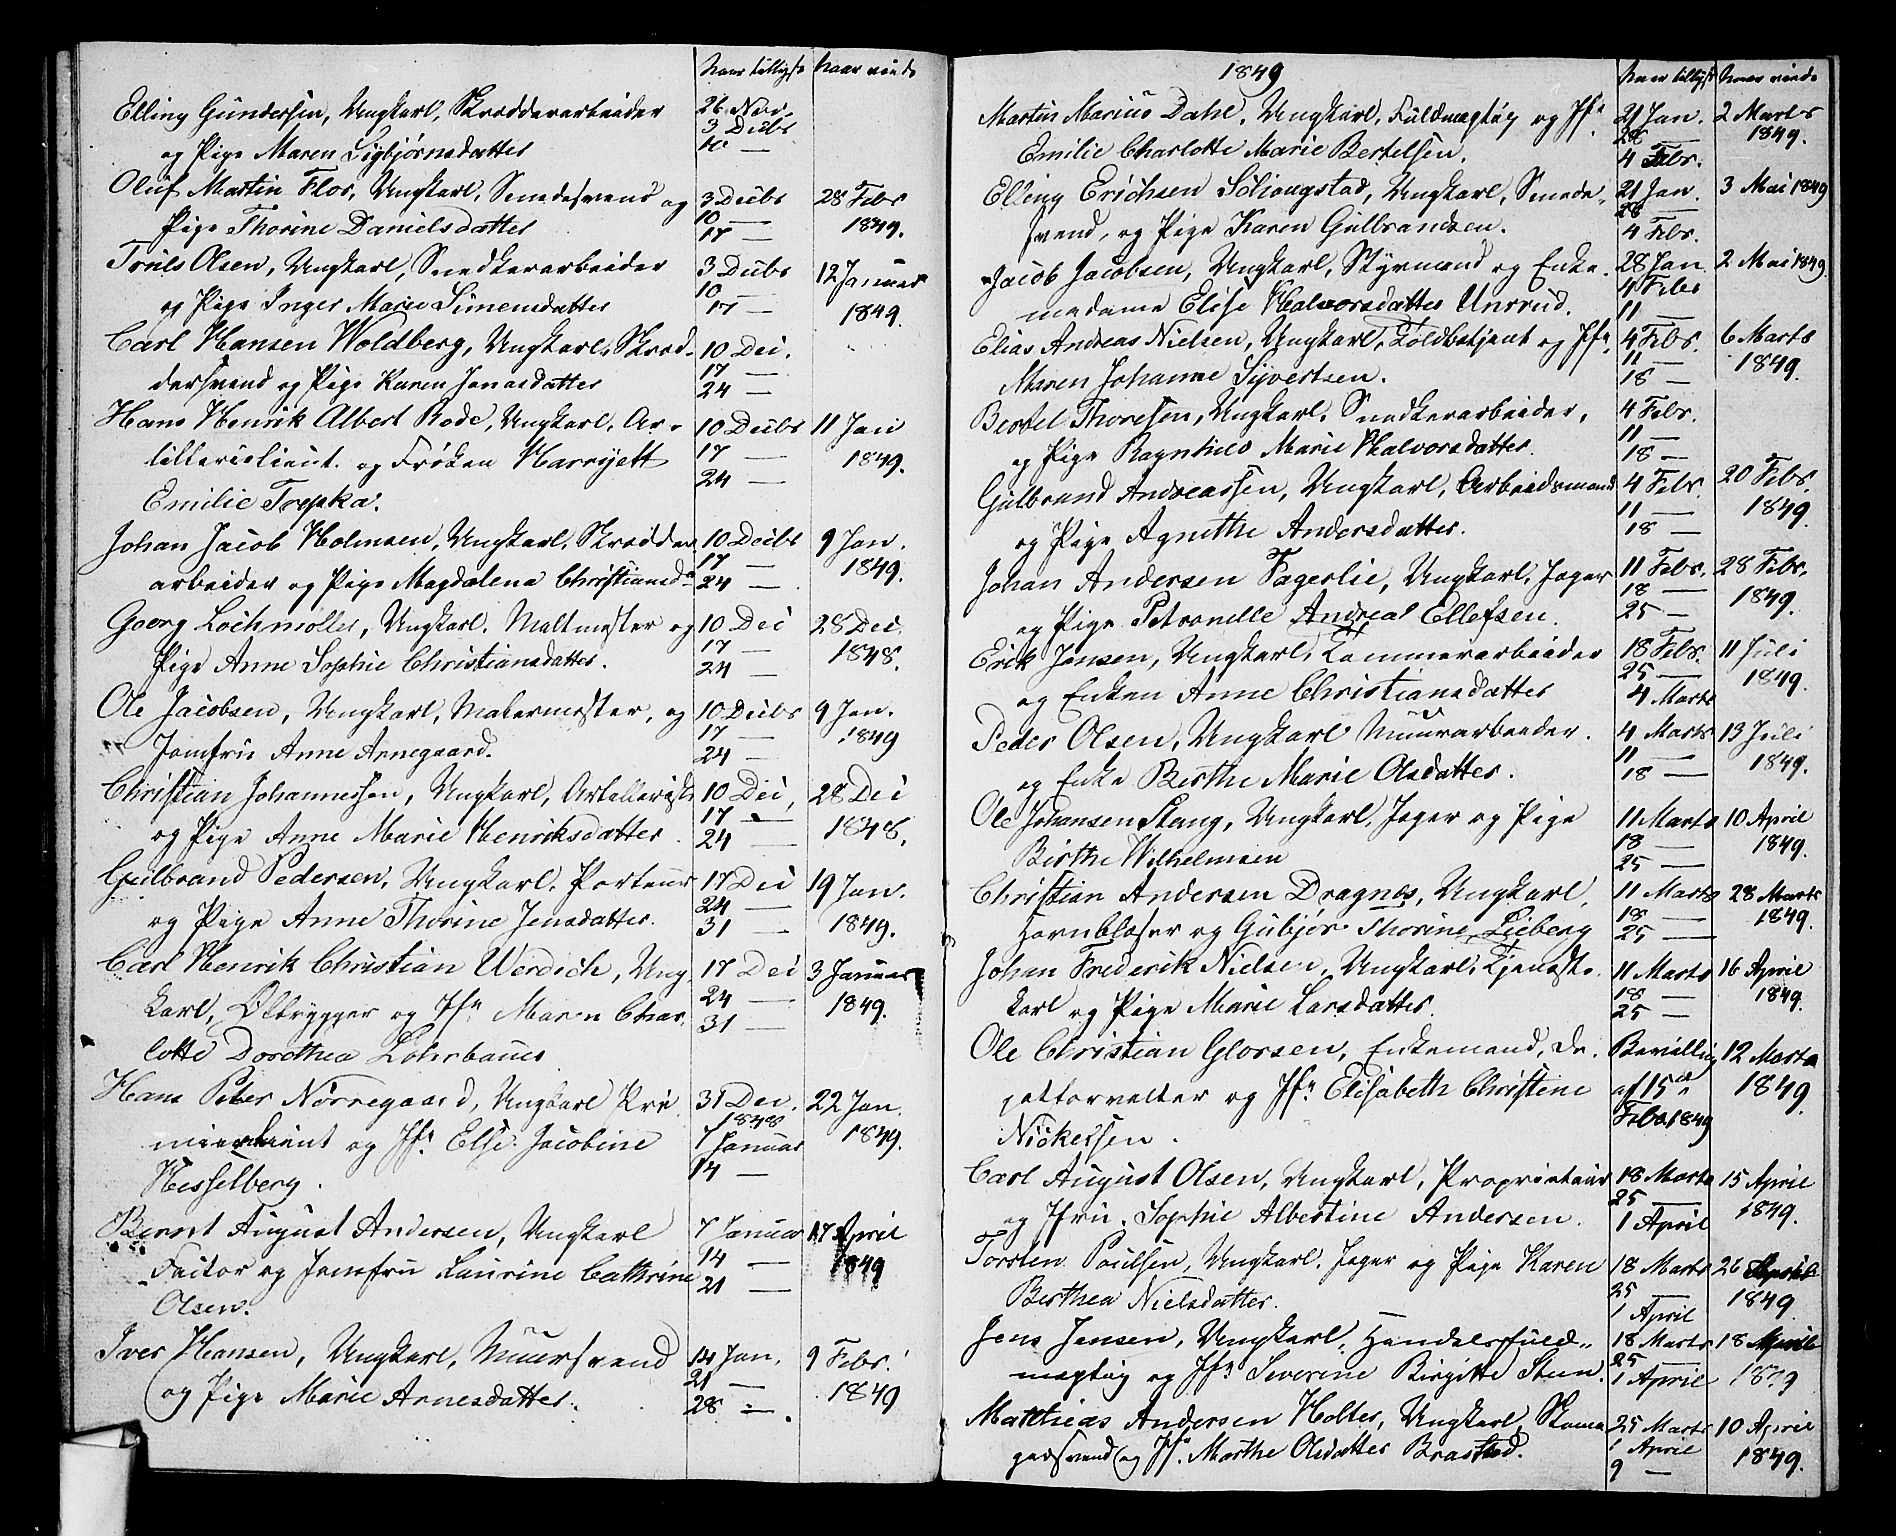 Naar tillyst Naar viede
Elling Gundersen, Ungkarl, Skrædderarbeider 26 Nov.
og Pige Maren Sigbjørnsdatter 3 Decbr
10 —
Oluf Martin Flor, Ungkarl, Smedesvend og 3 Decbr 28 Febr
Pige Thorine Danielsdatter 10 — 1849.
17 —
Truls Olsen, Ungkarl, Snedkerarbeider 3 Decbr 12 Januar
og Pige Inger Marie Simensdatter 10 — 1849.
17 —
Carl Hansen Woldberg, Ungkarl, Skræd- 10 Dec.
dersvend og Pige Karen Jonasdatter 17 —
24 —
Hans Henrik Albert Rode, Ungkarl, Ar- 10 Decbr 11 Jan
tillerielieut. og Frøken Harryett 17 — 1849.
Emilie Trepka. 24 —
Johan Jacob Holmsen, Ungkarl, Skrædder 10 Decbr 9 Jan.
arbeider og Pige Magdalena Christiansd. 17 — 1849.
24 —
Georg Lochmøller, Ungkarl, Maltmester og 10 Dec 28 Dec.
Pige Anne Sophie Christiansdatter. 17 — 1848.
24 —
Ole Jacobsen, Ungkarl, Malermester, og 10 Decbr 9 Jan.
Jomfru Anne Arnegaard. 17 — 1849
24 —
Christian Johannessen, Ungkarl, Artillerist 10 Dec, 28 Dec
og Pige Anne Marie Henriksdatter. 17 — 1848,
24 —
Gulbrand Pedersen, Ungkarl, Porteur 17 Dec 19 Jan.
og Pige Anne Thorine Jensdatter. 24 — 1849.
31 —
Carl Henrik Christian Werdich, Ung 17 Dec 3 Januar
karl, Ølbrygger og Jfr Maren Char 24 — 1849.
lotte Dorothea Lohrbauer 31 —
Hans Peter Nørregaard, Ungkarl Pre 31 Dec. 22 Jan.
mierlieut og Jfr. Else Jacobine 1848 1849.
Hesselberg. 7 Januar
14 —
Bernt August Andersen, Ungkarl 7 Januar 17 April
Factor og Jomfru Laurine Cathrine 14 — 1849
Olsen. 21 —
Iver Hansen, Ungkarl, Muursvend 14 Jan. 9 Febr.
og Pige Marie Arnesdatter. 21 — 1849
28 —
1849 Naar tillyst Naar viede
Martin Marius Dahl, Ungkarl, Fuldmægtig og Jfr 21 Jan. 2 Marts
Emilie Charlotte Marie Bertelsen. 28 — 1849.
4 Febr.
Elling Erichsen Soliaugstad, Ungkarl, Smede- 21 Jan. 3 Mai 1849
svend, og Pige Karen Gulbrandsen. 28 —
4 Febr.
Jacob Jacobsen, Ungkarl, Styrmand og Enke- 28 Jan 2 Mai 1849
madame Elise Halvorsdatter Unrud. 4 Febr
11 —
Elias Andreas Nielsen, Ungkarl, Toldbetjent og Jfr. 4 Febr. 6 Marts
Maren Johanne Syvertsen. 11 — 1849.
18 —
Bertel Thoresen, Ungkarl, Snedkerarbeider, 4 Febr.
og Pige Ragnhild Marie Halvorsdatter. 11 —
18 —
Gulbrand Andreassen, Ungkarl, Arbeidsmand 4 Febr. 20 Febr.
og Pige Agnethe Andersdatter. 11 — 1849.
18 —
Johan Andersen Fagerlie, Ungkarl, Jæger 11 Febr. 28 Febr.
og Pige Petronelle Andrea Ellefsen. 18 — 1849.
25 —
Erik Jensen, Ungkarl, Tømmerarbeider 18 Febr. 11 Juli
og Enken Anne Christiansdatter 25 — 1849.
4 Marts
Peder Olsen, Ungkarl Muurarbeider. 4 Marts 13 Juli
og Enke Berthe Marie Olsdatter. 11 — 1849.
18 —
Ole Johansen Stang, Ungkarl, Jæger og Pige 11 Marts 10 April
Birthe Wilhelmsen 18 — 1849.
25 —
Christian Andersen Dragnæs, Ungkarl, 11 Marts 28 Marts
Hornblæser og Gubjør Thorine Lieberg 18 — 1849.
25 —
Johan Frederik Nielsen, Ungkarl, Tjeneste- 11 Marts 16 April
karl og Pige Marie Larsdatter. 18 — 1849.
25 —
Ole Christian Glorsen, Enkemand, De- Bevilling 12 Marts
potforvalter og Jfr. Elisabeth Christine af 15de 1849.
Nickelsen. Febr. 1849
Carl August Olsen, Ungkarl, Proprietair 18 Marts 15 April
og Jfru. Sophie Albertine Andersen. 25 — 1849.
1 April
Torsten Poulsen, Ungkarl, Jæger og Pige Karen 18 Marts 26 April
Berthea Nielsdatter. 25 1849
1 April
Jens Jensen, Ungkarl, Handelsfuld- 18 Marts 18 April
mægtig og Jfr Severine Birgitte Steen. 25 — 1849
1 April
Matthias Andersen Holter, Ungkarl, Skoma 25 Marts 10 April
gersvend og Jfr. Marthe Olsdatter Brastad. 1 April 1849.
9 —